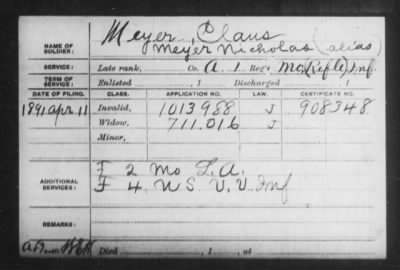 Meyer, Claus
NAME OF SOLDIER: Meyer Nicholas (alias)
SERVICE: Late rank, Co. A 1 Reg't Mo (Rifle) Inf.
TERM OF SERVICE: Enlisted , 1 Discharged , 1
DATE OF FILING. CLASS. APPLICATION NO. LAW. CERTIFICATE NO.
1891 Apr. 11 Invalid, 1013988 J 908348
Widow, 711.016 J
Minor,
ADDITIONAL SERVICES: F 2 Mo L.A.
F 4 U S V. V. Inf
REMARKS:
Died , 1 , at